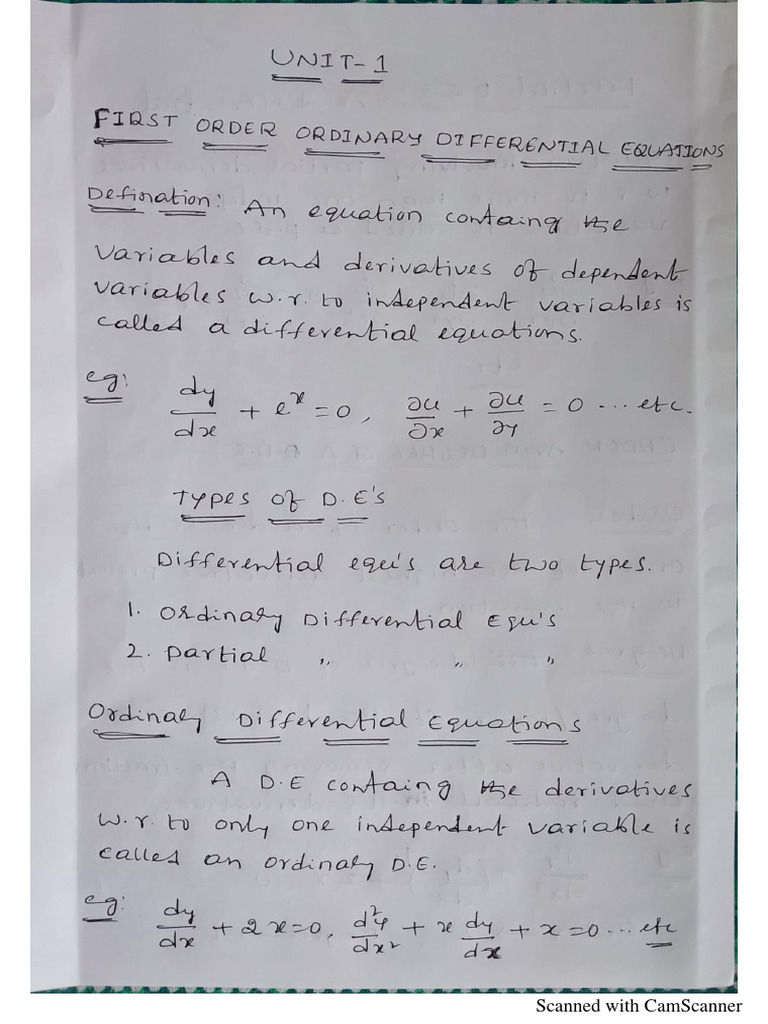 UNIT-1
FIRST ORDER ORDINARY DIFFERENTIAL EQUATIONS
Defination: An equation containg the
variables and derivatives of dependent
variables w.r. to independent variables is
called a differential equations.
eg: dy/dx + e^x = 0, ∂u/∂x + ∂u/∂y = 0 ... etc.
Types of D.E's
Differential equ's are two types.
1. Ordinary Differential Equ's
2. Partial " " "
Ordinary Differential Equations
A D.E containg the derivatives
w.r. to only one independent variable is
called an ordinary D.E.
eg: dy/dx + 2x=0, d²y/dx² + x dy/dx + x = 0 ... etc
Scanned with CamScanner